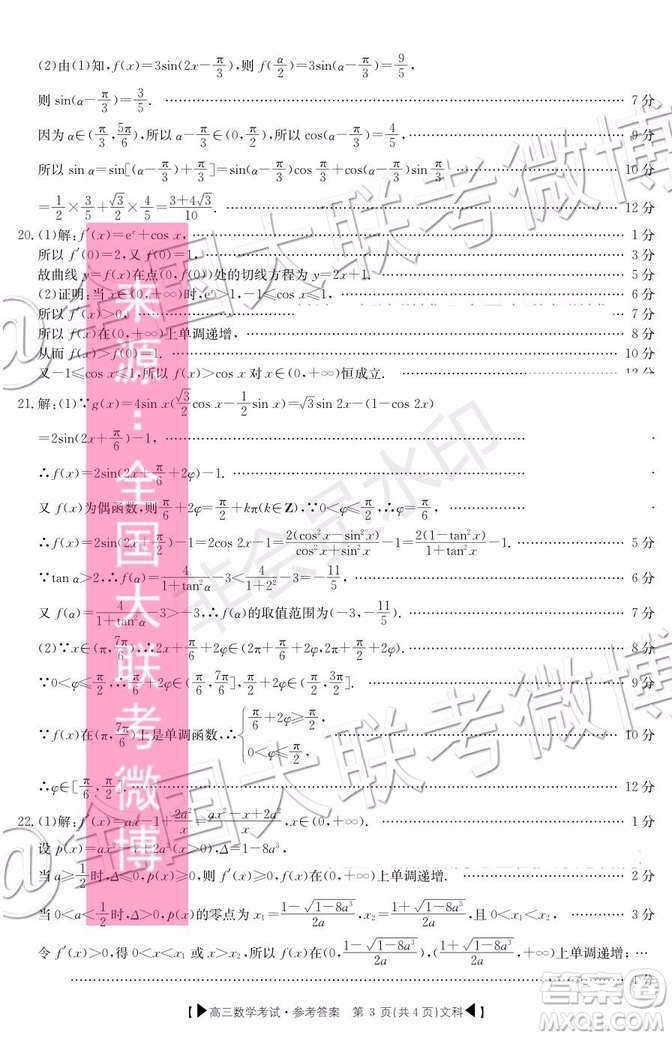 (2)由(1)知,f(x)=3sin(2x-π/3),则 f(α/2)=3sin(α-π/3)=9/5,
则 sin(α-π/3)=3/5. 7 分
因为 α∈(π/3,5π/6),所以 α-π/3∈(0,π/2),所以 cos(α-π/3)=4/5, 9 分
所以 sin α=sin[(α-π/3)+π/3]=sin(α-π/3)cos π/3+cos(α-π/3)sin π/3 10 分
=1/2×3/5+√3/2×4/5=(3+4√3)/10. 12 分
20.(1)解:f′(x)=eˣ+cos x, 1 分
所以 f′(0)=2,又 f(0)=1, 3 分
故曲线 y=f(x)在点(0,f(0))处的切线方程为 y=2x+1. 5 分
(2)证明:当 x∈(0,+∞)时,eˣ>1,-1≤cos x≤1, 6 分
所以 f′(x)>0, 7 分
所以 f(x)在(0,+∞)上单调递增, 8 分
从而 f(x)>f(0)=1, 10 分
又-1≤cos x≤1,所以 f(x)>cos x 对 x∈(0,+∞)恒成立. 12 分
21.解:(1)∵g(x)=4sin x(√3/2 cos x-1/2 sin x)=√3sin 2x-(1-cos 2x)
=2sin(2x+π/6)-1,
∴f(x)=2sin(2x+π/6+2φ)-1,
又 f(x)为偶函数,则π/6+2φ=π/2+kπ(k∈Z),∵0<φ≤π/2,∴φ=π/6.
∴f(x)=2sin(2x+π/2)-1=2cos 2x-1=2(cos²x-sin²x)/(cos²x+sin²x)-1=2(1-tan²x)/(1+tan²x)-1. 5 分
∵tan α>2,∴f(α)=4/(1+tan²α)-3<4/(1+2²)-3=-11/5. 6 分
又 f(α)=4/(1+tan²α)-3>-3,∴f(α)的取值范围为(-3,-11/5). 7 分
(2)∵x∈(π,7π/6),∴2x+π/6+2φ∈(2π+π/6+2φ,2π+π/2+2φ), 8 分
∵0<φ≤π/2,∴π/6+2φ∈(π/6,7π/6],π/2+2φ∈(π/2,3π/2]. 9 分
∵f(x)在(π,7π/6)上是单调函数,∴{π/6+2φ≥π/2, 0<φ≤π/2,
∴φ∈[π/6,π/2]. 12 分
22.(1)解:f′(x)=ax-1+2a²/x=(ax²-x+2a²)/x,x∈(0,+∞). 1 分
设 p(x)=ax²-x+2a²(x>0),Δ=1-8a³,
当 a≥1/2时,Δ≤0,p(x)≥0,则 f′(x)≥0,f(x)在(0,+∞)上单调递增.
当 0<a<1/2时,Δ>0,p(x)的零点为 x₁=(1-√(1-8a³))/2a,x₂=(1+√(1-8a³))/2a,且 0<x₁<x₂, 3 分
令 f′(x)>0,得 0<x<x₁ 或 x>x₂,所以 f(x)在(0,(1-√(1-8a³))/2a),((1+√(1-8a³))/2a,+∞)上单调递增;
4 分
【▶高三数学考试·参考答案 第 3 页(共 4 页)文科◀】
来源:全国大联考微博
@全国大联考微博
@全国大联考微博
非会员水印